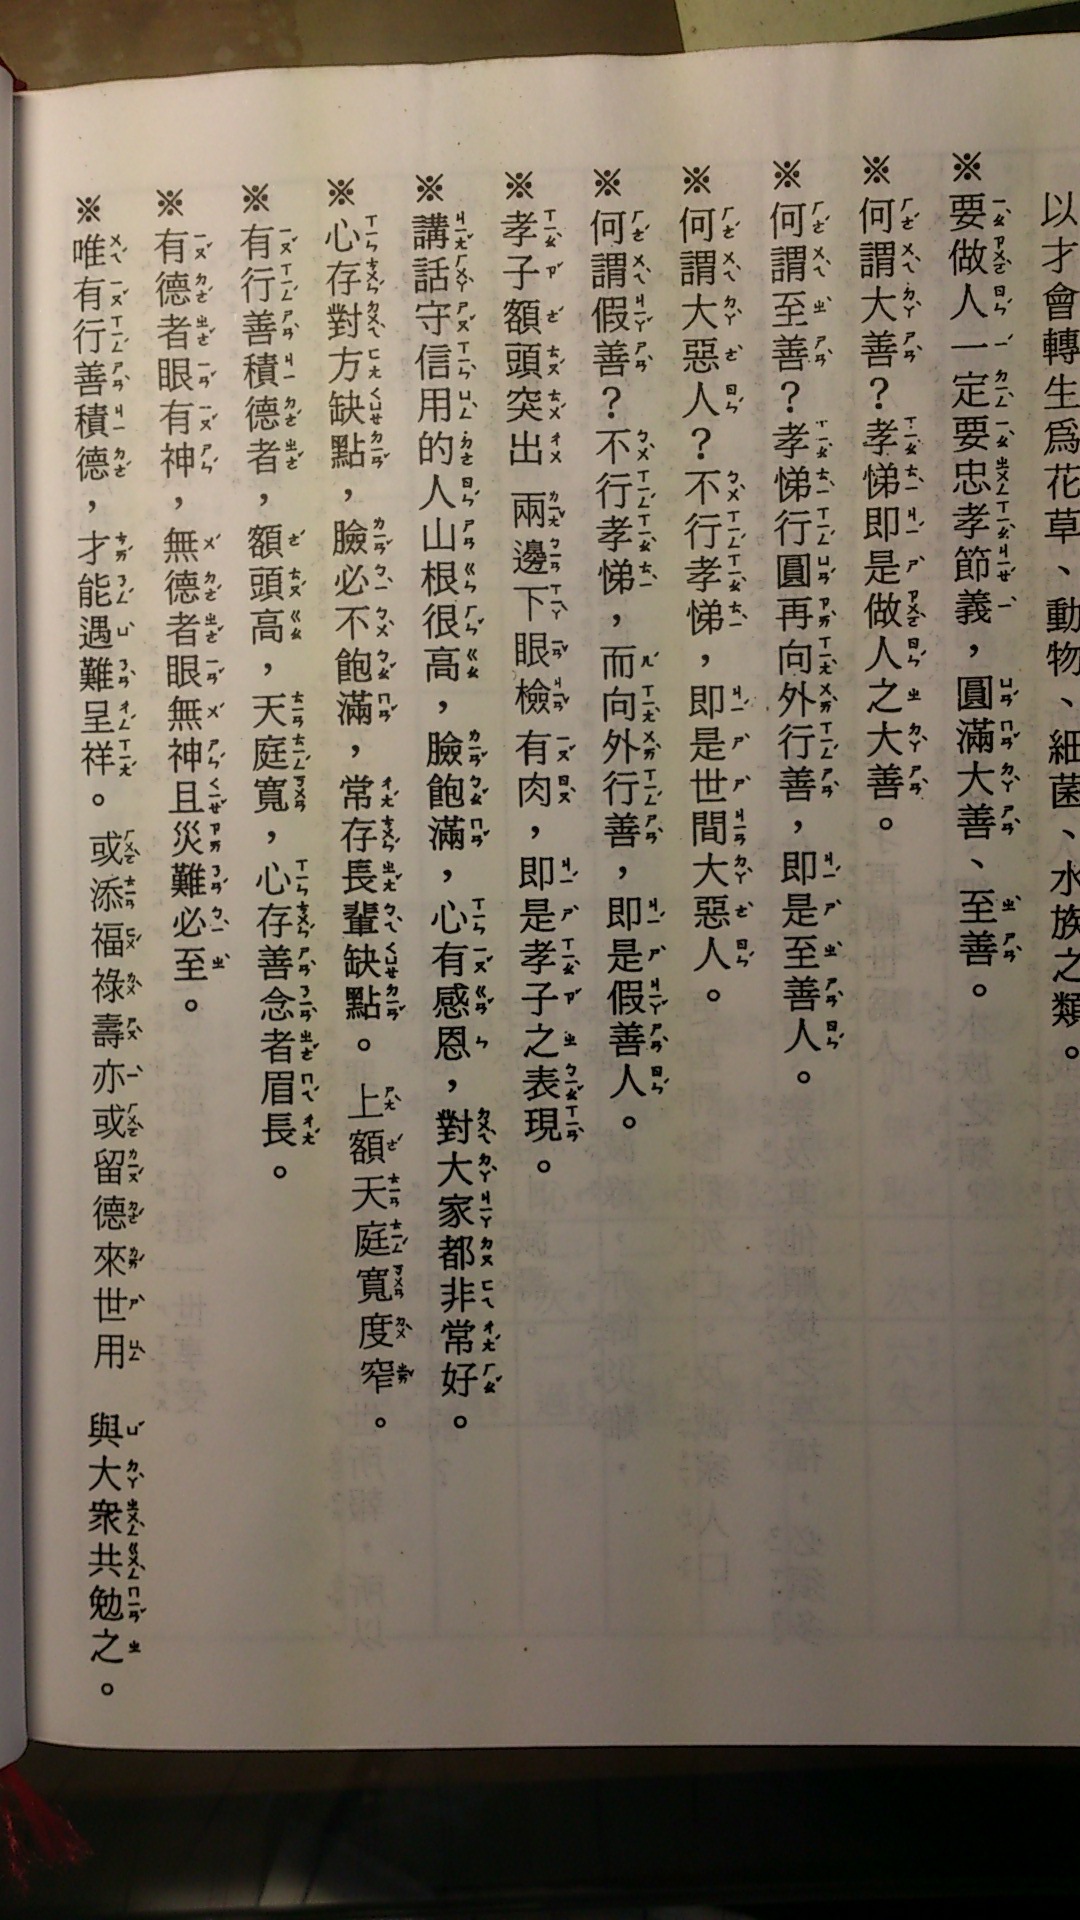 以才會轉生為花草、動物、細菌、水族之類。
※要做人一定要忠孝節義，圓滿大善、至善。
※何謂大善？孝悌即是做人之大善。
※何謂至善？孝悌行圓再向外行善，即是至善人。
※何謂大惡人？不行孝悌，即是世間大惡人。
※何謂假善？不行孝悌，而向外行善，即是假善人。
※孝子額頭突出 兩邊下眼檢有肉，即是孝子之表現。
※講話守信用的人山根很高，臉飽滿，心有感恩，對大家都非常好。
※心存對方缺點，臉必不飽滿，常存長輩缺點。上額天庭寬度窄。
※有行善積德者，額頭高，天庭寬，心存善念者眉長。
※有德者眼有神，無德者眼無神且災難必至。
※唯有行善積德，才能遇難呈祥。或添福祿壽亦或留德來世用 與大衆共勉之。